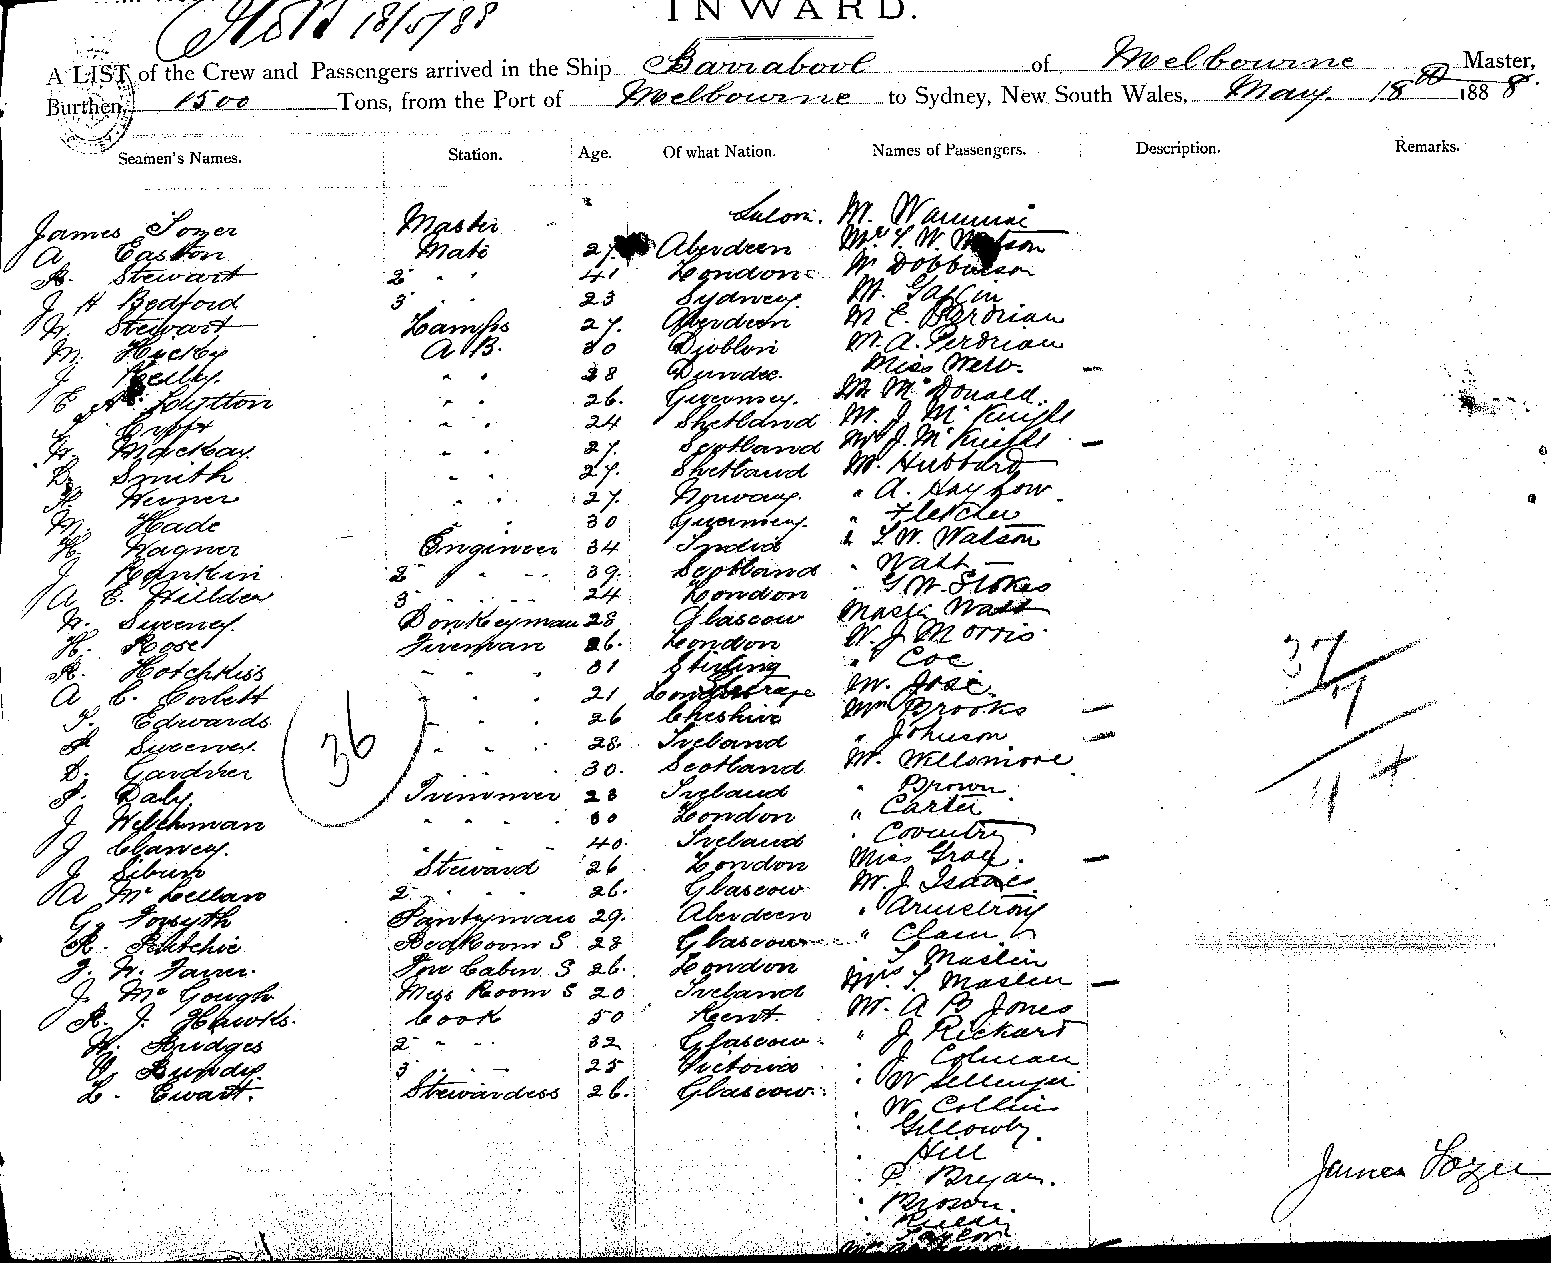 INWARD.
18/5/88
A LIST of the Crew and Passengers arrived in the Ship Barrabool of Melbourne Master,
Burthen, 1500 Tons, from the Port of Melbourne to Sydney, New South Wales, May 18th 1888.
Seamen's Names. Station. Age. Of what Nation. Names of Passengers. Description. Remarks.
James Tozer Master Saloon. Mr.
A Easton Mate 27. Aberdeen Mrs T. W. Watson
R. Stewart 2 " " 41 London Mr Dobbinson
J H Bedford 3 " " 23 Sydney. Mr.
W. Stewart Lamps 27. Aberdeen Mr E. Perdriau
M. Hickey A B. 30 Dublin Mr. A. Perdriau
J Kelly. " " 28 Dundee. Miss Webb. —
E Lytton " " 26. Guernsey. Mr McDonald.
" " 24 Shetland Mr. J McKnight
W. Mackay. " " 27. Scotland Mrs J. McKnight —
D. Smith " " 27. Shetland Mr. Hubbard
" " 27. Norway. " A. Haybow.
M. Hade " " 30 Guernsey. " Fletcher
H Wagner Engineer 34 India " T. W. Watson
J Rankin 2 " " 39. Scotland " Watt
A E. Hillden 3 " " 24 London " G W. Stokes
W. Sweeney. Donkeyman 28 Glascow Master Watt
H. Rose Fireman 26. London Mr J Morris
R. Hotchkiss " " " 31 Stirling " Coe
A C. Corbett " " " 21 London Steerage Mr. Jose.
T. Edwards " " " 26 Cheshire Mrs Brooks —
P Sweeney. " " " 28. Ireland " Johnson —
D. Gardner " " " 30. Scotland Mr. Wellsmore
P. Daly Trimmer 23 Ireland " Brown.
J Welchman " " " 30 London " Carter
J Clancy. " " " 40. Ireland " Coventry
J Siburn Steward 26 London Miss Gray. —
A McLellan 2 " " 26. Glascow Mr. J. Isaacs.
G. Forsyth Pantryman 29. Aberdeen " Armstrong
R. Ritchie Bed Room S 23 Glascow "
J. W. Farrer. Fore Cabin S 26. London " T Maslin
J. McGough Mess Room S 20 Ireland Mrs T. Maslin —
R. J. Hawks. Cook 50 Kent. Mr. A B Jones
W. Bridges 2 " " 32 Glascow " J Rickard
Bundy. 3 " " 25 Victoria " J Colman
L. Ewart. Stewardess 26. Glascow " W Sellinger
" W. Collin
" Gillowby.
" Hill
" P. Bryan.
" Brown.
" Taylor
36
37
7
44
James Tozer